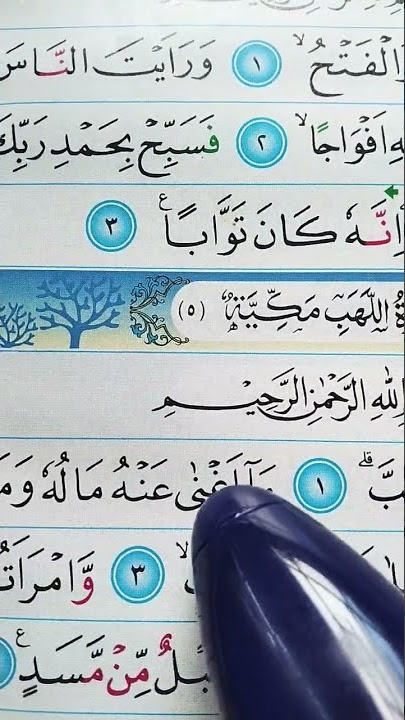 الْفَتْحُ ۙ ١ وَرَاَيْتَ النَّاسَ
اَفْوَاجًا ۙ ٢ فَسَبِّحْ بِحَمْدِ رَبِّكَ
اِنَّهٗ كَانَ تَوَّابًا ٣
اللَّهَبِ مَكِّيَّةٌ (٥)
اللهِ الرَّحْمٰنِ الرَّحِيْمِ
بَّ ۗ ١ مَآ اَغْنٰى عَنْهُ مَالُهٗ وَمَ
٣ وَّامْرَاَتُ
مِّنْ مَّسَدٍ